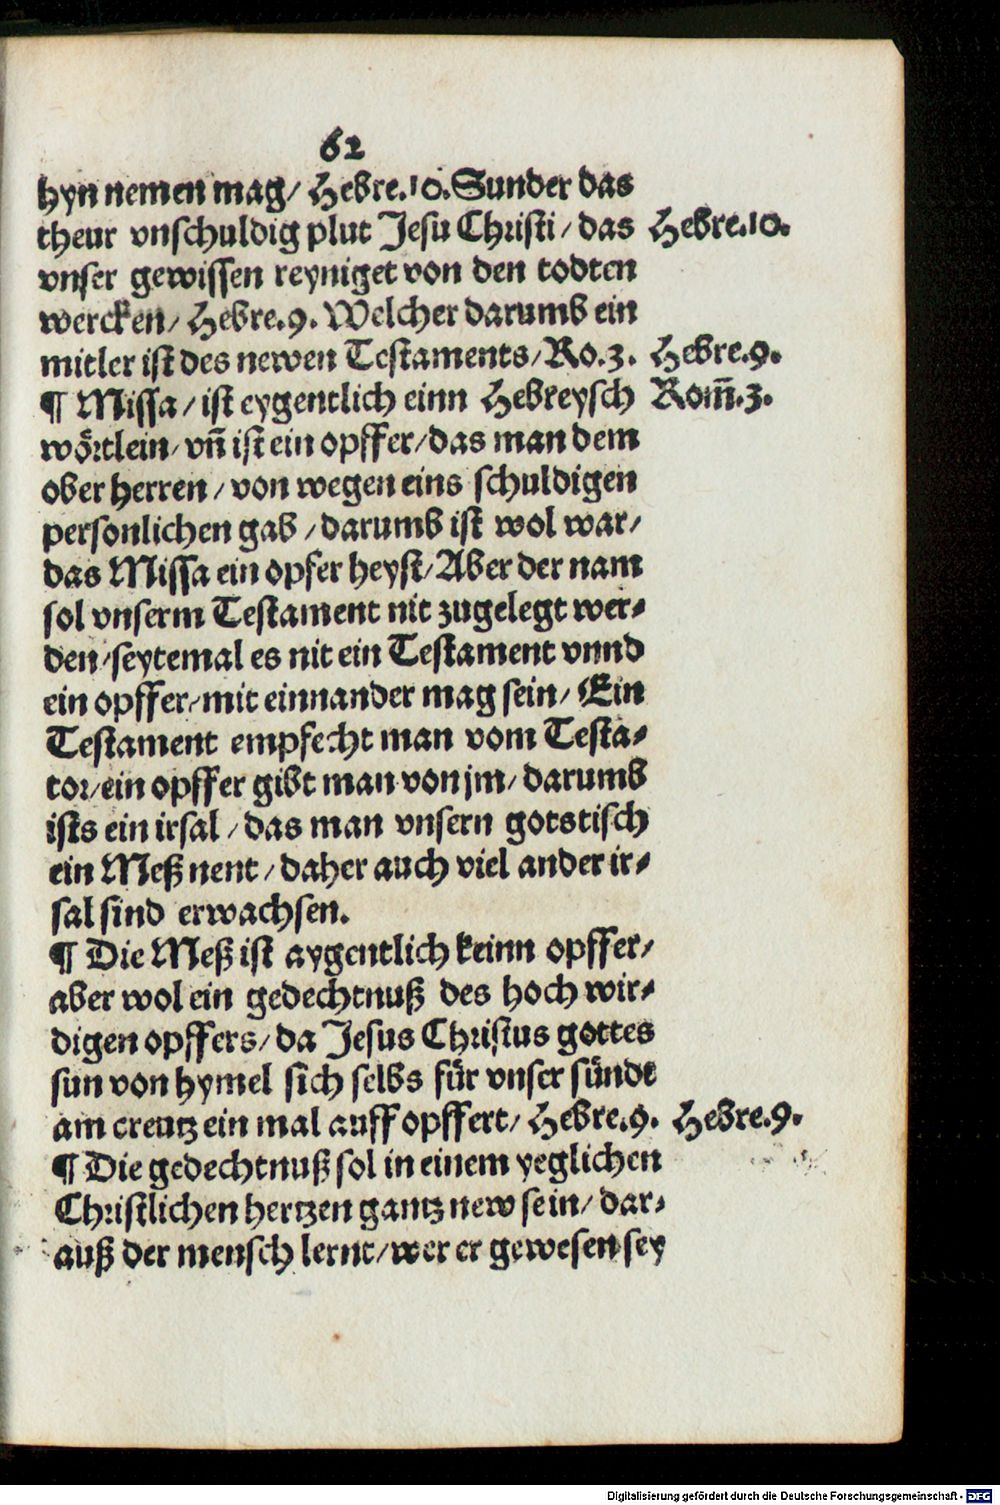 62
hyn nemen mag/ Hebre.10. Sunder das
theur vnschuldig plut Jesu Christi/ das
Hebre.10.
vnser gewissen reyniget von den todten
wercken/ Hebre.9. Welcher darumb ein
mitler ist des newen Testaments/ Ro.3.
Hebre.9.
¶ Missa/ ist eygentlich einn Hebreysch
Rom̃.3.
wörtlein/ vn̄ ist ein opffer/ das man dem
ober herren/ von wegen eins schuldigen
personlichen gab/ darumb ist wol war/
das Missa ein opfer heyst/ Aber der nam
sol vnserm Testament nit zugelegt wer-
den/ seytemal es nit ein Testament vnnd
ein opffer/ mit einnander mag sein/ Ein
Testament empfecht man vom Testa-
tor/ ein opffer gibt man von jm/ darumb
ists ein irsal/ das man vnsern gotstisch
ein Meß nent/ daher auch viel ander ir-
sal sind erwachsen.
¶ Die Meß ist aygentlich keinn opffer/
aber wol ein gedechtnuß des hoch wir-
digen opffers/ da Jesus Christus gottes
sun von hymel sich selbs für vnser sünde
am creutz ein mal auff opffert/ Hebre.9.
Hebre.9.
¶ Die gedechtnuß sol in einem yeglichen
Christlichen hertzen gantz new sein/ dar-
auß der mensch lernt/ wer er gewesen sey
Digitalisierung gefördert durch die Deutsche Forschungsgemeinschaft - DFG